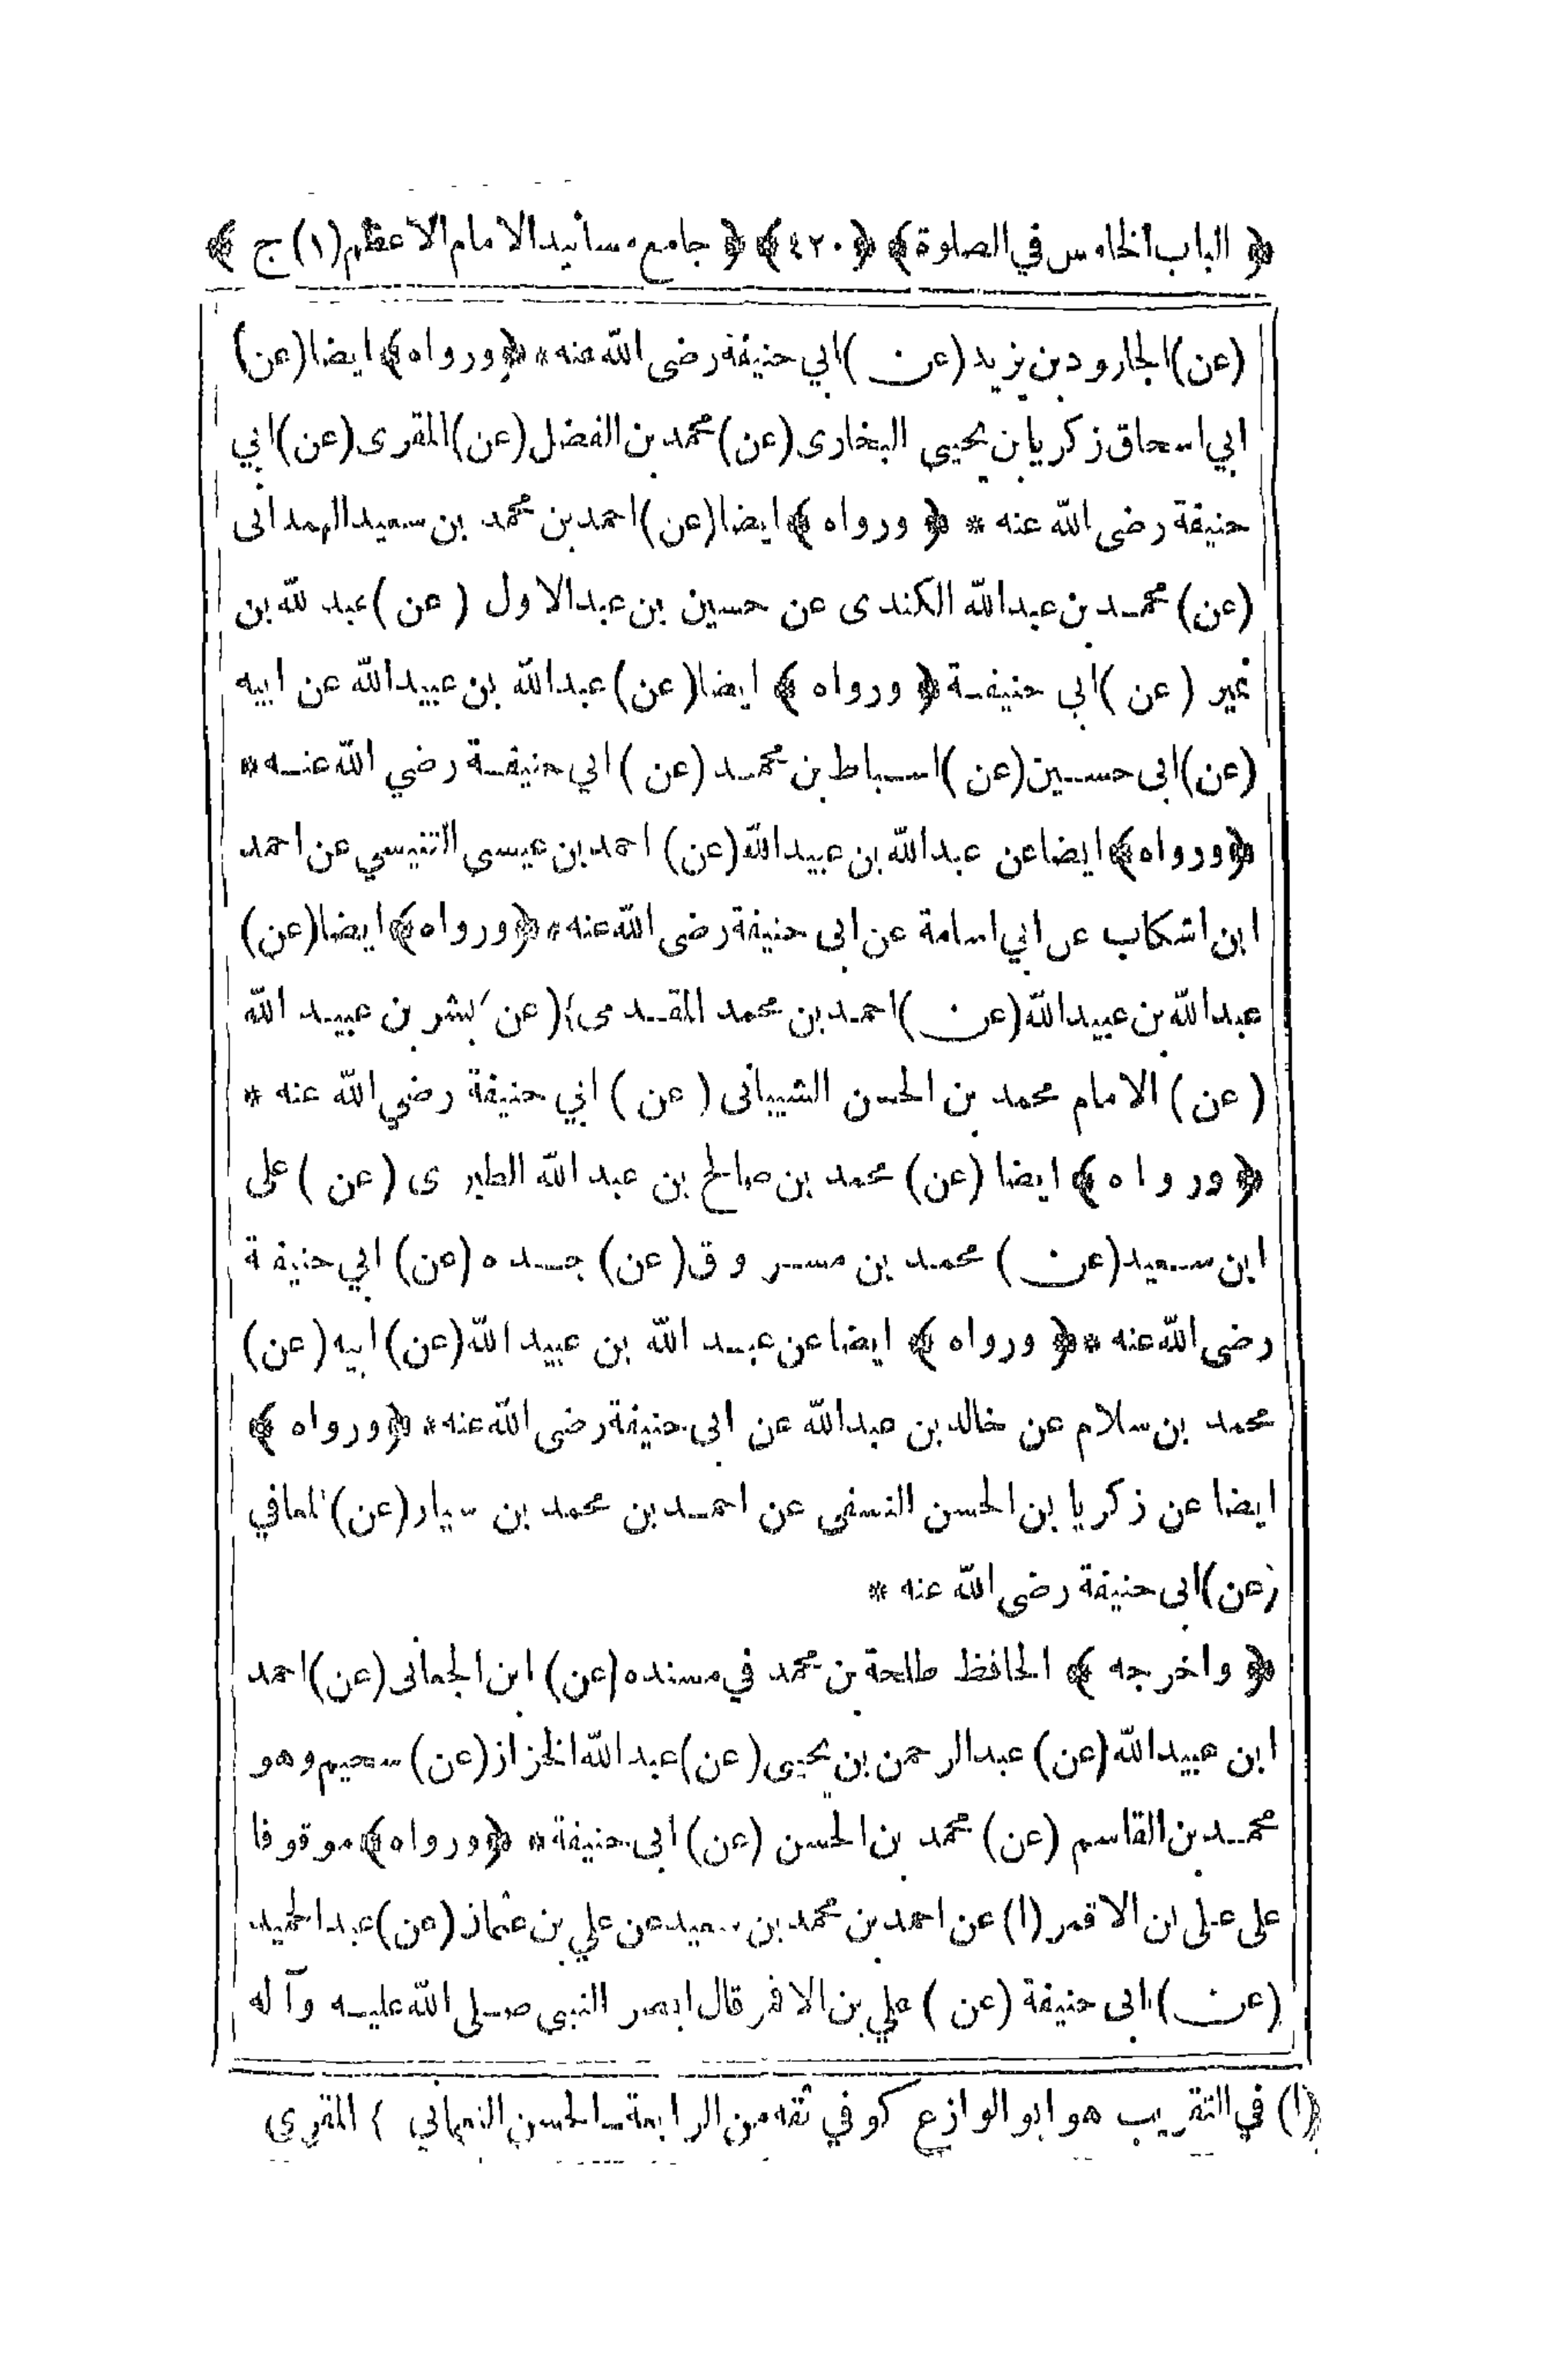 ﴿ الباب الخامس في الصلوة ﴾ ﴿ ٤٢٠ ﴾ ﴿ جامع مسانيد الامام الاعظم (١) ج ﴾
(عن) الجارود بن يزيد (عن) ابي حنيفة رضى الله عنه * ﴿ ورواه ﴾ ايضا (عن)
ابي اسحاق زكريا بن يحيى البخارى (عن) محمد بن الفضل (عن) المقرى (عن) ابي
حنيفة رضى الله عنه * ﴿ ورواه ﴾ ايضا (عن) احمد بن محمد بن سعيد الهمدانى
(عن) محمد بن عبدالله الكندى عن حسين بن عبدالاول (عن) عبد لله بن
نمير (عن) ابي حنيفة ﴿ ورواه ﴾ ايضا (عن) عبدالله بن عبيدالله عن ابيه
(عن) ابى حسين (عن) اسباط بن محمد (عن) ابي حنيفة رضي الله عنه *
﴿ ورواه ﴾ ايضا عن عبدالله بن عبيدالله (عن) احمد بن عيسى التنيسي عن احمد
ابن اشكاب عن ابي اسامة عن ابى حنيفة رضى الله عنه * ﴿ ورواه ﴾ ايضا (عن)
عبدالله بن عبيدالله (عن) احمد بن محمد المقدمى (عن بشر بن عبيد الله
(عن) الامام محمد بن الحسن الشيبانى (عن) ابي حنيفة رضي الله عنه *
﴿ ورواه ﴾ ايضا (عن) محمد بن صالح بن عبد الله الطبرى (عن) على
ابن سعيد (عن) محمد بن مسروق (عن) جده (عن) ابي حنيفة
رضى الله عنه * ﴿ ورواه ﴾ ايضا عن عبد الله بن عبيد الله (عن) ابيه (عن)
محمد بن سلام عن خالد بن عبدالله عن ابى حنيفة رضى الله عنه * ﴿ ورواه ﴾
ايضا عن زكريا بن الحسن النسفى عن احمد بن محمد بن سيار (عن) المعافي
(عن) ابى حنيفة رضى الله عنه *
﴿ واخرجه ﴾ الحافظ طلحة بن محمد في مسنده (عن) ابن الجمانى (عن) احمد
ابن عبيدالله (عن) عبدالرحمن بن يحيى (عن) عبدالله الخزاز (عن) سحيم وهو
محمد بن القاسم (عن) محمد بن الحسن (عن) ابى حنيفة * ﴿ ورواه ﴾ موقوفا
على على ابن الاقمر (ا) عن احمد بن محمد بن سعيد عن علي بن عثمان (عن) عبدالحميد
(عن) ابى حنيفة (عن) علي بن الاقمر قال ابصر النبى صلى الله عليه وآله
(ا) في التقريب هو ابو الوازع كوفي ثقه من الرابعة ـ الحسن النعماني } المقرى